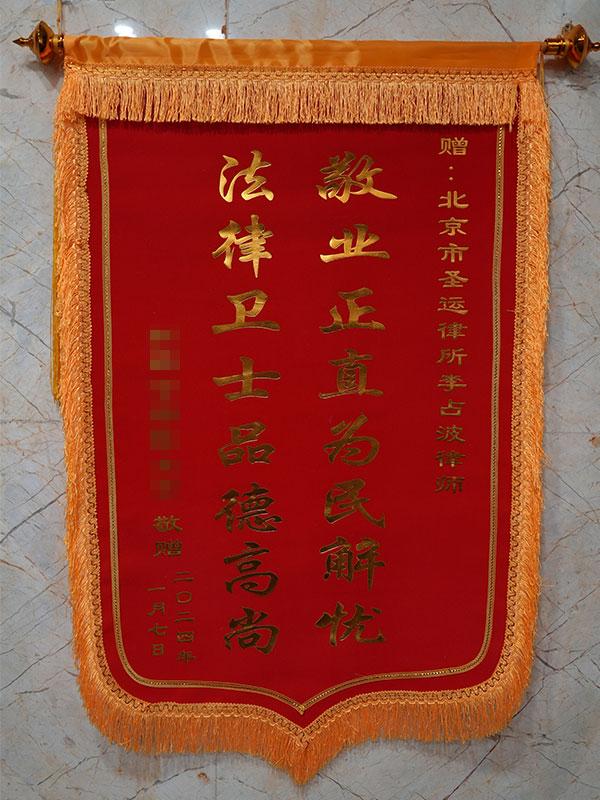 赠：北京市圣运律所李占波律师
敬业正直为民解忧
法律卫士品德高尚
敬赠
二〇二四年
一月七日